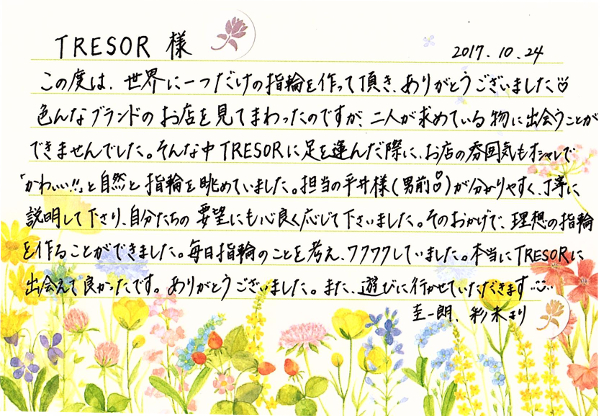 TRESOR 様
2017.10.24
この度は、世界に一つだけの指輪を作って頂き、ありがとうございました♡
色んなブランドのお店を見てまわったのですが、二人が求めている物に出会うことが
できませんでした。そんな中TRESORに足を運んだ際に、お店の雰囲気もオシャレで
「かわいい!!」と自然と指輪を眺めていました。担当の平井様(男前)が分かりやすく、丁寧に
説明して下さり、自分たちの要望にも心良く応じて下さいました。そのおかげで、理想の指輪
を作ることができました。毎日指輪のことを考え、ワクワクしていました。本当にTRESORに
出会えて良かったです。ありがとうございました。また、遊びに行かせていただきます
圭一朗、彩未より